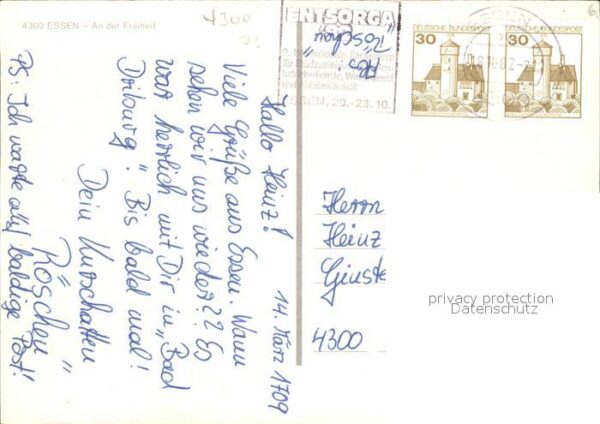 4300 ESSEN - An der Freiheit
4300
ENTSORGA
ESSEN, 20.-23.10.
Abs.:
"Röschen"
DEUTSCHE BUNDESPOST
30
DEUTSCHE BUNDESPOST
30
ESSEN
14. März 1709
Hallo Heinz!
Viele Grüße aus Essen. Wann
sehen wir uns wieder?? Es
war herrlich mit Dir in „Bad
Driburg". Bis bald mal!
Dein Kurschatten
"Röschen"
PS: Ich warte auf baldige Post!
Herrn
Heinz
Ginste
4300
privacy protection
Datenschutz